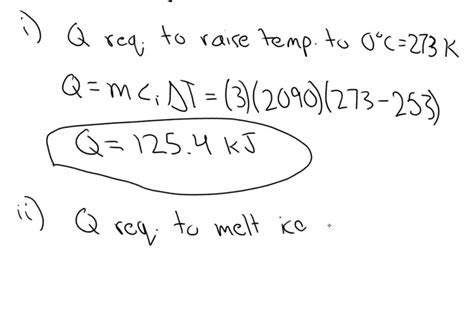 i) Q req. to raise temp. to 0°C = 273 K
Q = m c_i ΔT = (3)(2090)(273 - 253)
Q = 125.4 kJ
ii) Q req. to melt ice